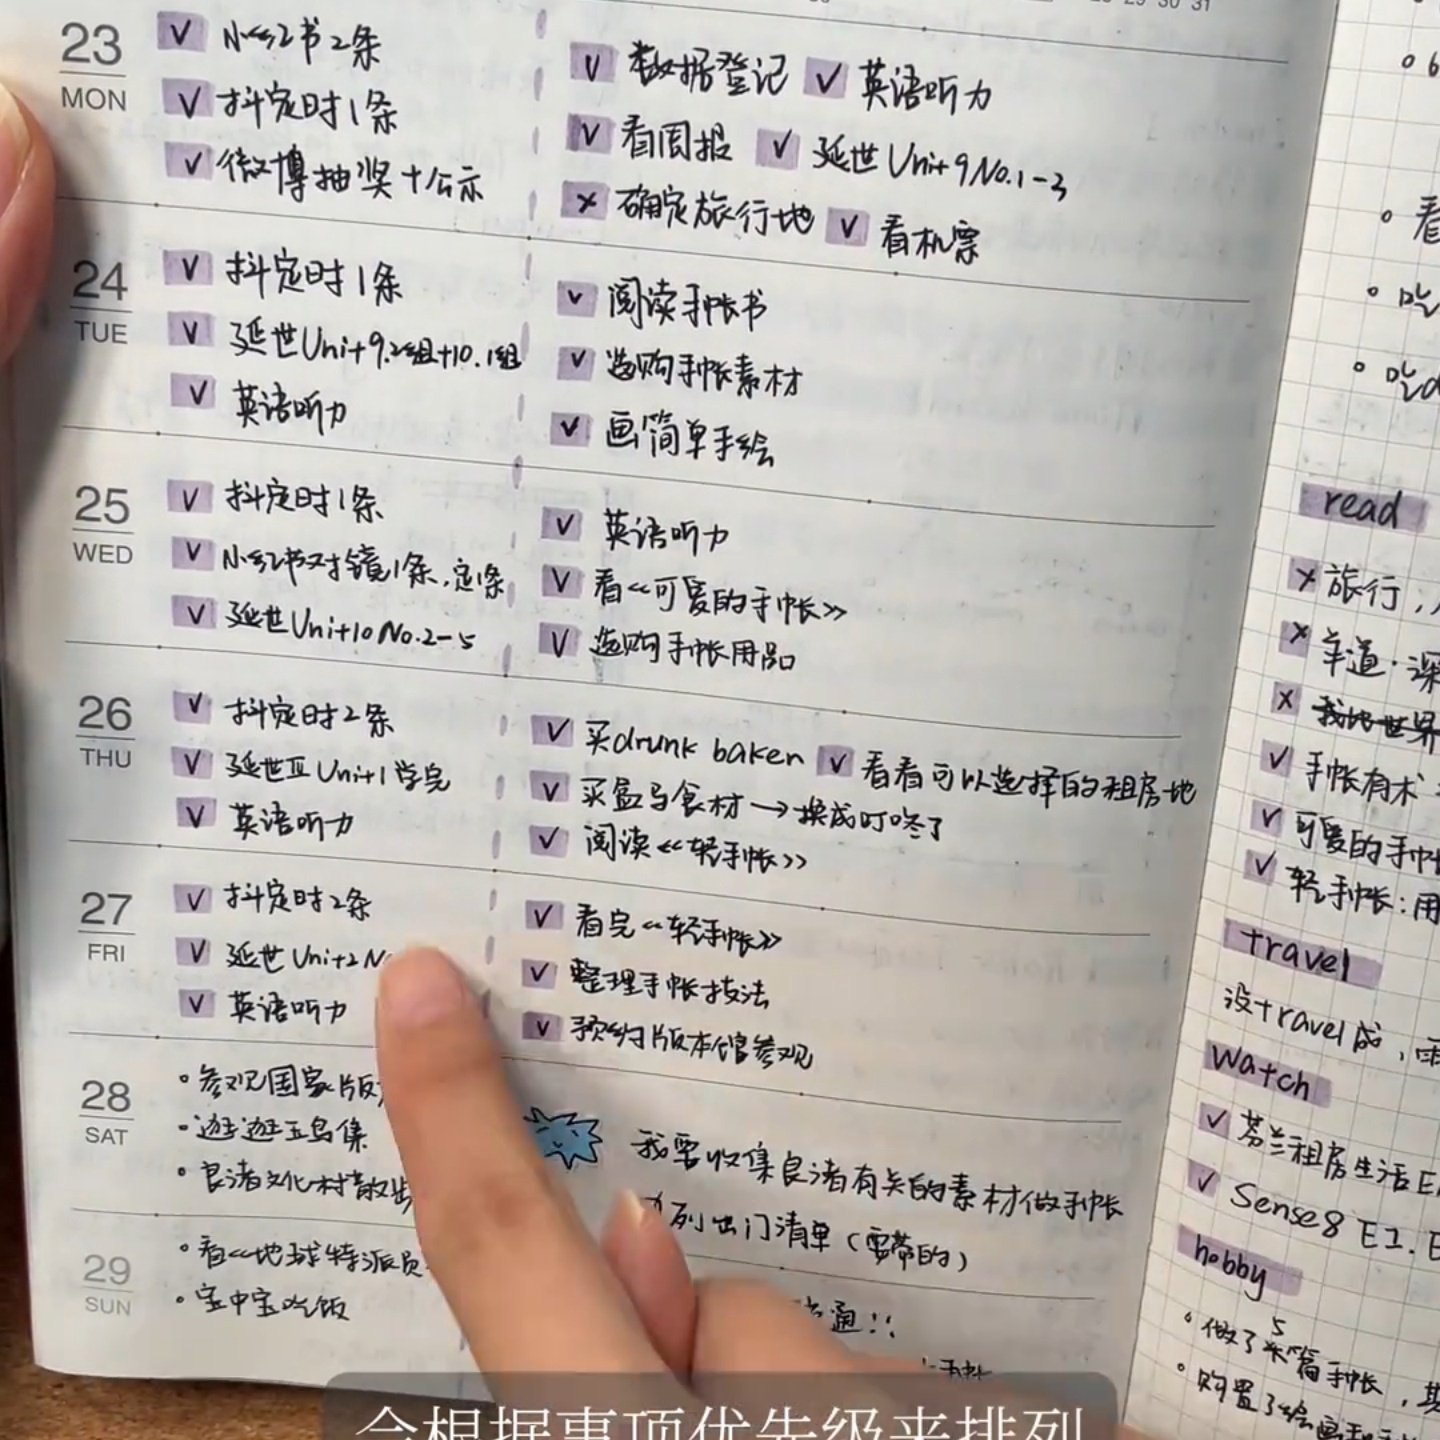 28 29 30 31
23
MON
V 小红书2条
V 抖定时1条
V 微博抽奖+公示
V 数据登记 V 英语听力
V 看周报 V 延世Unit9No.1-3
x 确定旅行地 V 看机票
24
TUE
V 抖定时1条
V 延世Unit9.2组+10.1组
V 英语听力
V 阅读手帐书
V 选购手帐素材
V 画简单手绘
25
WED
V 抖定时1条
V 小红书对镜1条,定1条
V 延世Unit10No.2-5
V 英语听力
V 看《可爱的手帐》
V 选购手帐用品
26
THU
V 抖定时2条
V 延世Ⅲ Unit1学完
V 英语听力
V 买drunk baker V 看看可以选择的租房地
V 买盒马食材→换成叮咚了
V 阅读《轻手帐》
27
FRI
V 抖定时2条
V 延世Unit2
V 英语听力
V 看完《轻手帐》
V 整理手帐技法
V 预约版本馆参观
28
SAT
·参观国家版
·逛逛玉鸟集
·良渚文化村散步
我要收集良渚有关的素材做手帐
列出门清单(要带的)
29
SUN
·看《地球特派员
·宝中宝吃饭
通!!
手帐
会根据事项优先级来排列
看
吃
吃
read
x 旅行,
x 羊道·深
x 我的世界
V 手帐有术
V 可爱的手帐
V 轻手帐:用
travel
没travel成,雨
watch
V 芬兰租房生活E
V Sense8 E1.E
hobby
·做了5篇手帐,
·购置了绘画